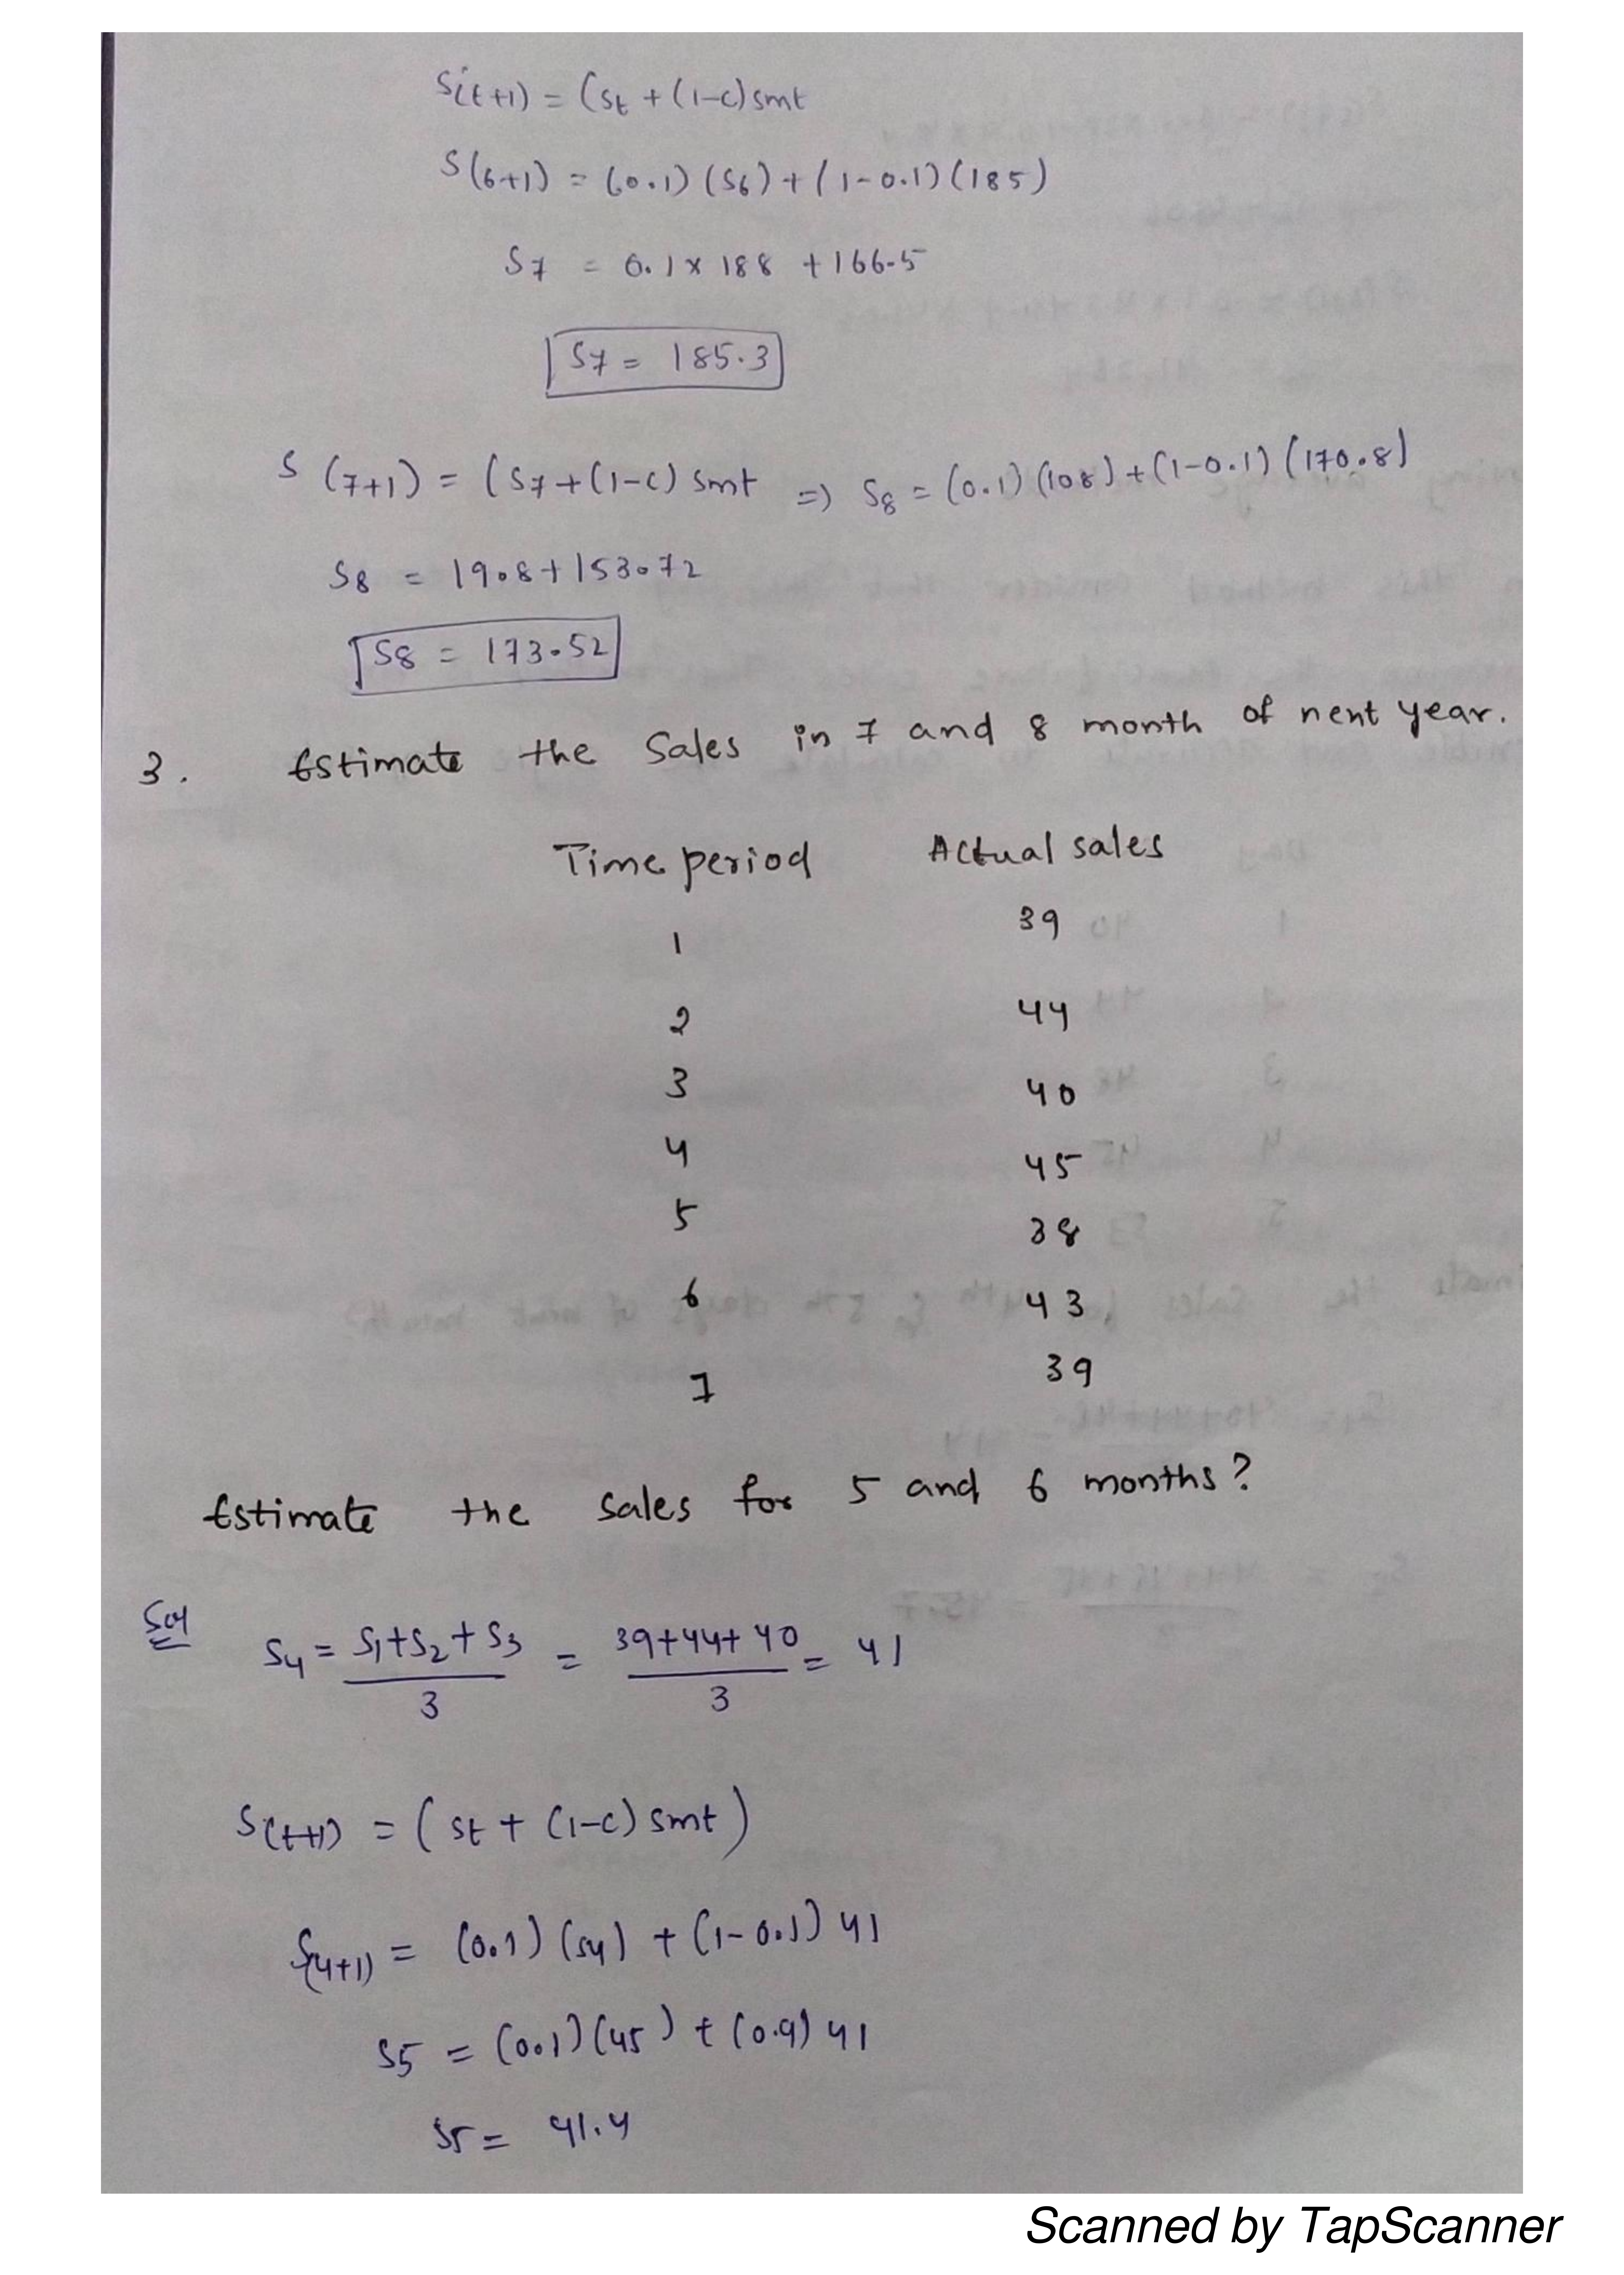 S(t+1) = (St + (1-c) smt
S(6+1) = (0.1) (S6) + (1-0.1) (185)
S7 = 0.1 x 188 + 166.5
S7 = 185.3
S (7+1) = (S7 + (1-c) smt => S8 = (0.1) (108) + (1-0.1) (170.8)
S8 = 19.8 + 153.72
S8 = 173.52
3. Estimate the Sales in 7 and 8 month of nent year.
Time period Actual sales
1 39
2 44
3 40
4 45
5 38
6 43
7 39
Estimate the sales for 5 and 6 months?
Sol
S4 = S1+S2+S3 / 3 = 39+44+40 / 3 = 41
S(t+1) = (St + (1-c) smt)
S(4+1) = (0.1) (S4) + (1-0.1) 41
S5 = (0.1) (45) + (0.9) 41
S5 = 41.4
Scanned by TapScanner